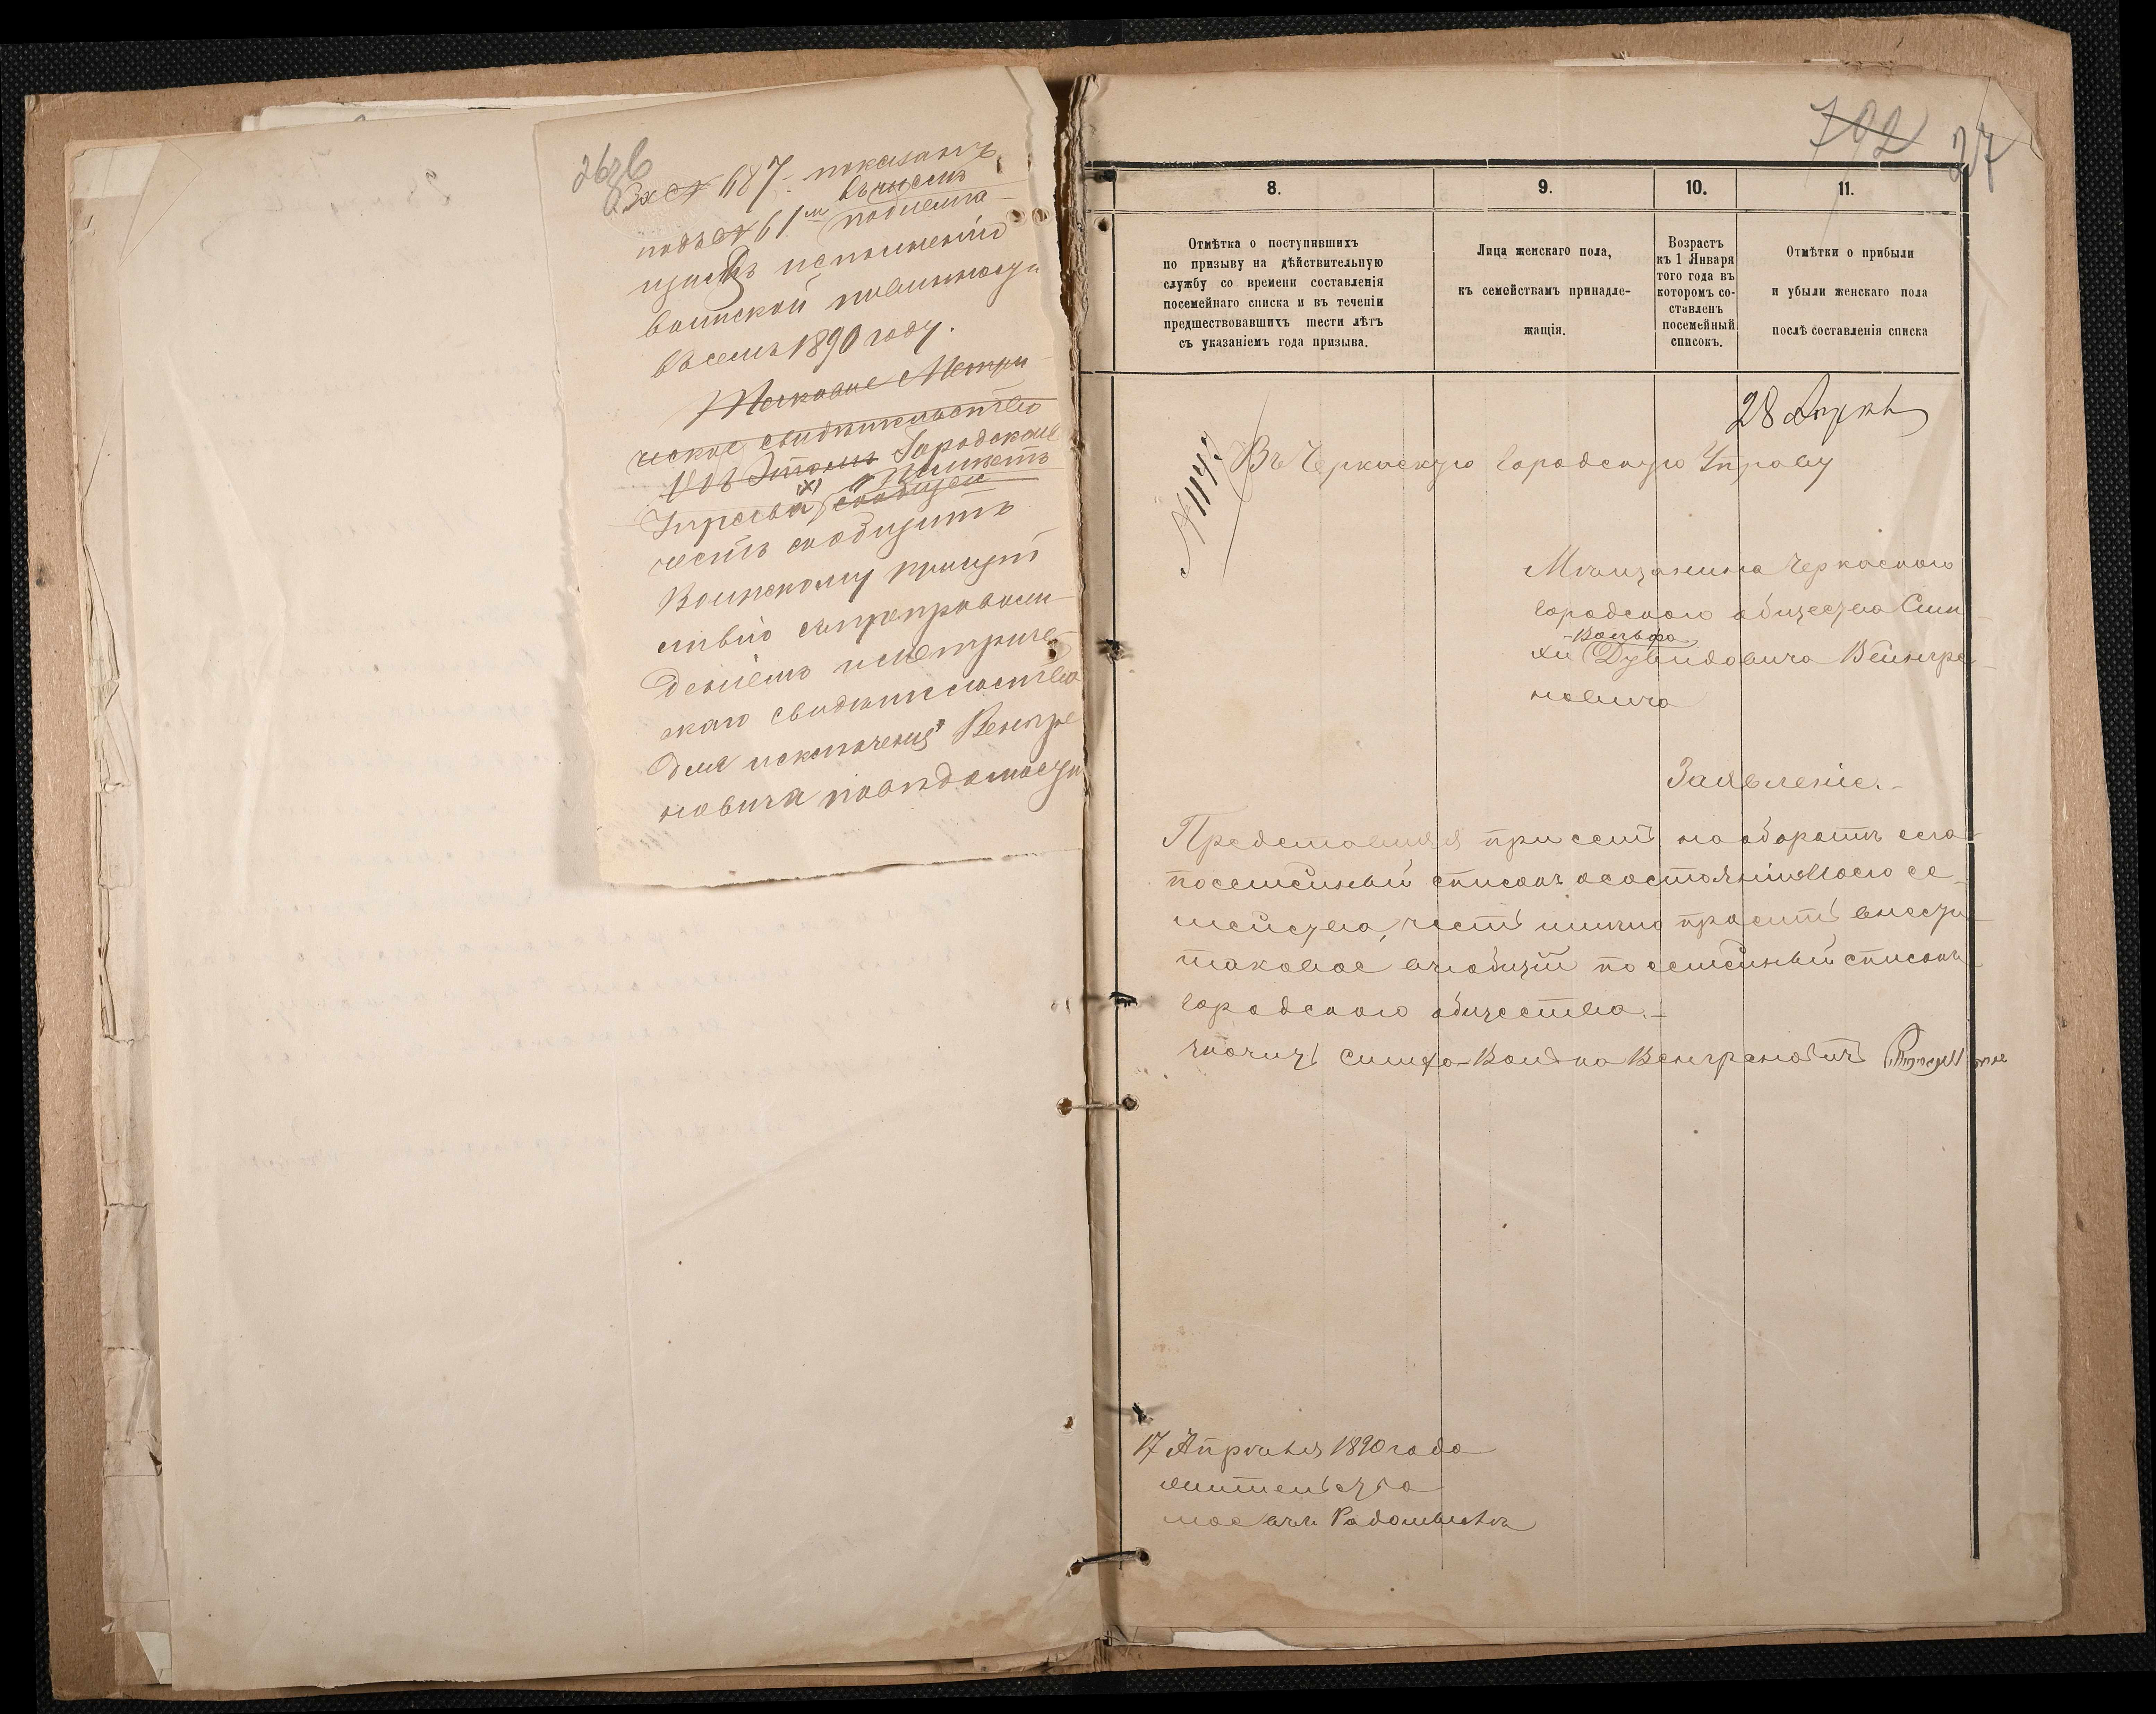 26зв
687 показанъ
въ числѣ
подъ № 61мъ подлежа-
щихъ исполненію
воинской повинности
въ семъ 1890 году.
Таковое Метри
ческое свидѣтельство
Городская
Управа (х) имѣетъ
сообщ
честь сообщить
Воинскому присут
ствію съ препровож
деніемъ метриче-
скаго свидѣтельства
для исключенія Венгре
новича
702
27
8.
9.
10.
11.
Отмѣтка о поступившихъ
по призыву на дѣйствительную
службу со времени составленія
посемейнаго списка и въ теченіи
предшествовавшихъ шести лѣтъ
съ указаніемъ года призыва.
Лица женскаго пола,
къ семействамъ принадле-
жащія.
Возрастъ
къ 1 Января
того года въ
которомъ со-
ставленъ
посемейный
списокъ.
Отмѣтки о прибыли
и убыли женскаго пола
послѣ составленія списка
28 Апрѣл
№ 1147
Въ Черкаскую городскую Управу
Мѣщанина Черкаского
городского общества Сим
-Вольфа
хи Дувидовича Венгре-
новича
Заявленіе.-
Представляя при семъ на оборотѣ сего
посемейный списокъ о состояніи моего се-
мейства, честь имѣю просить внести
таковое въ общій посемейный списокъ
городского общества.-
Симха-Вольфъ Венгреновичъ
17 Апрѣля 1890 года
жительство
мое въ м. Радомыслѣ